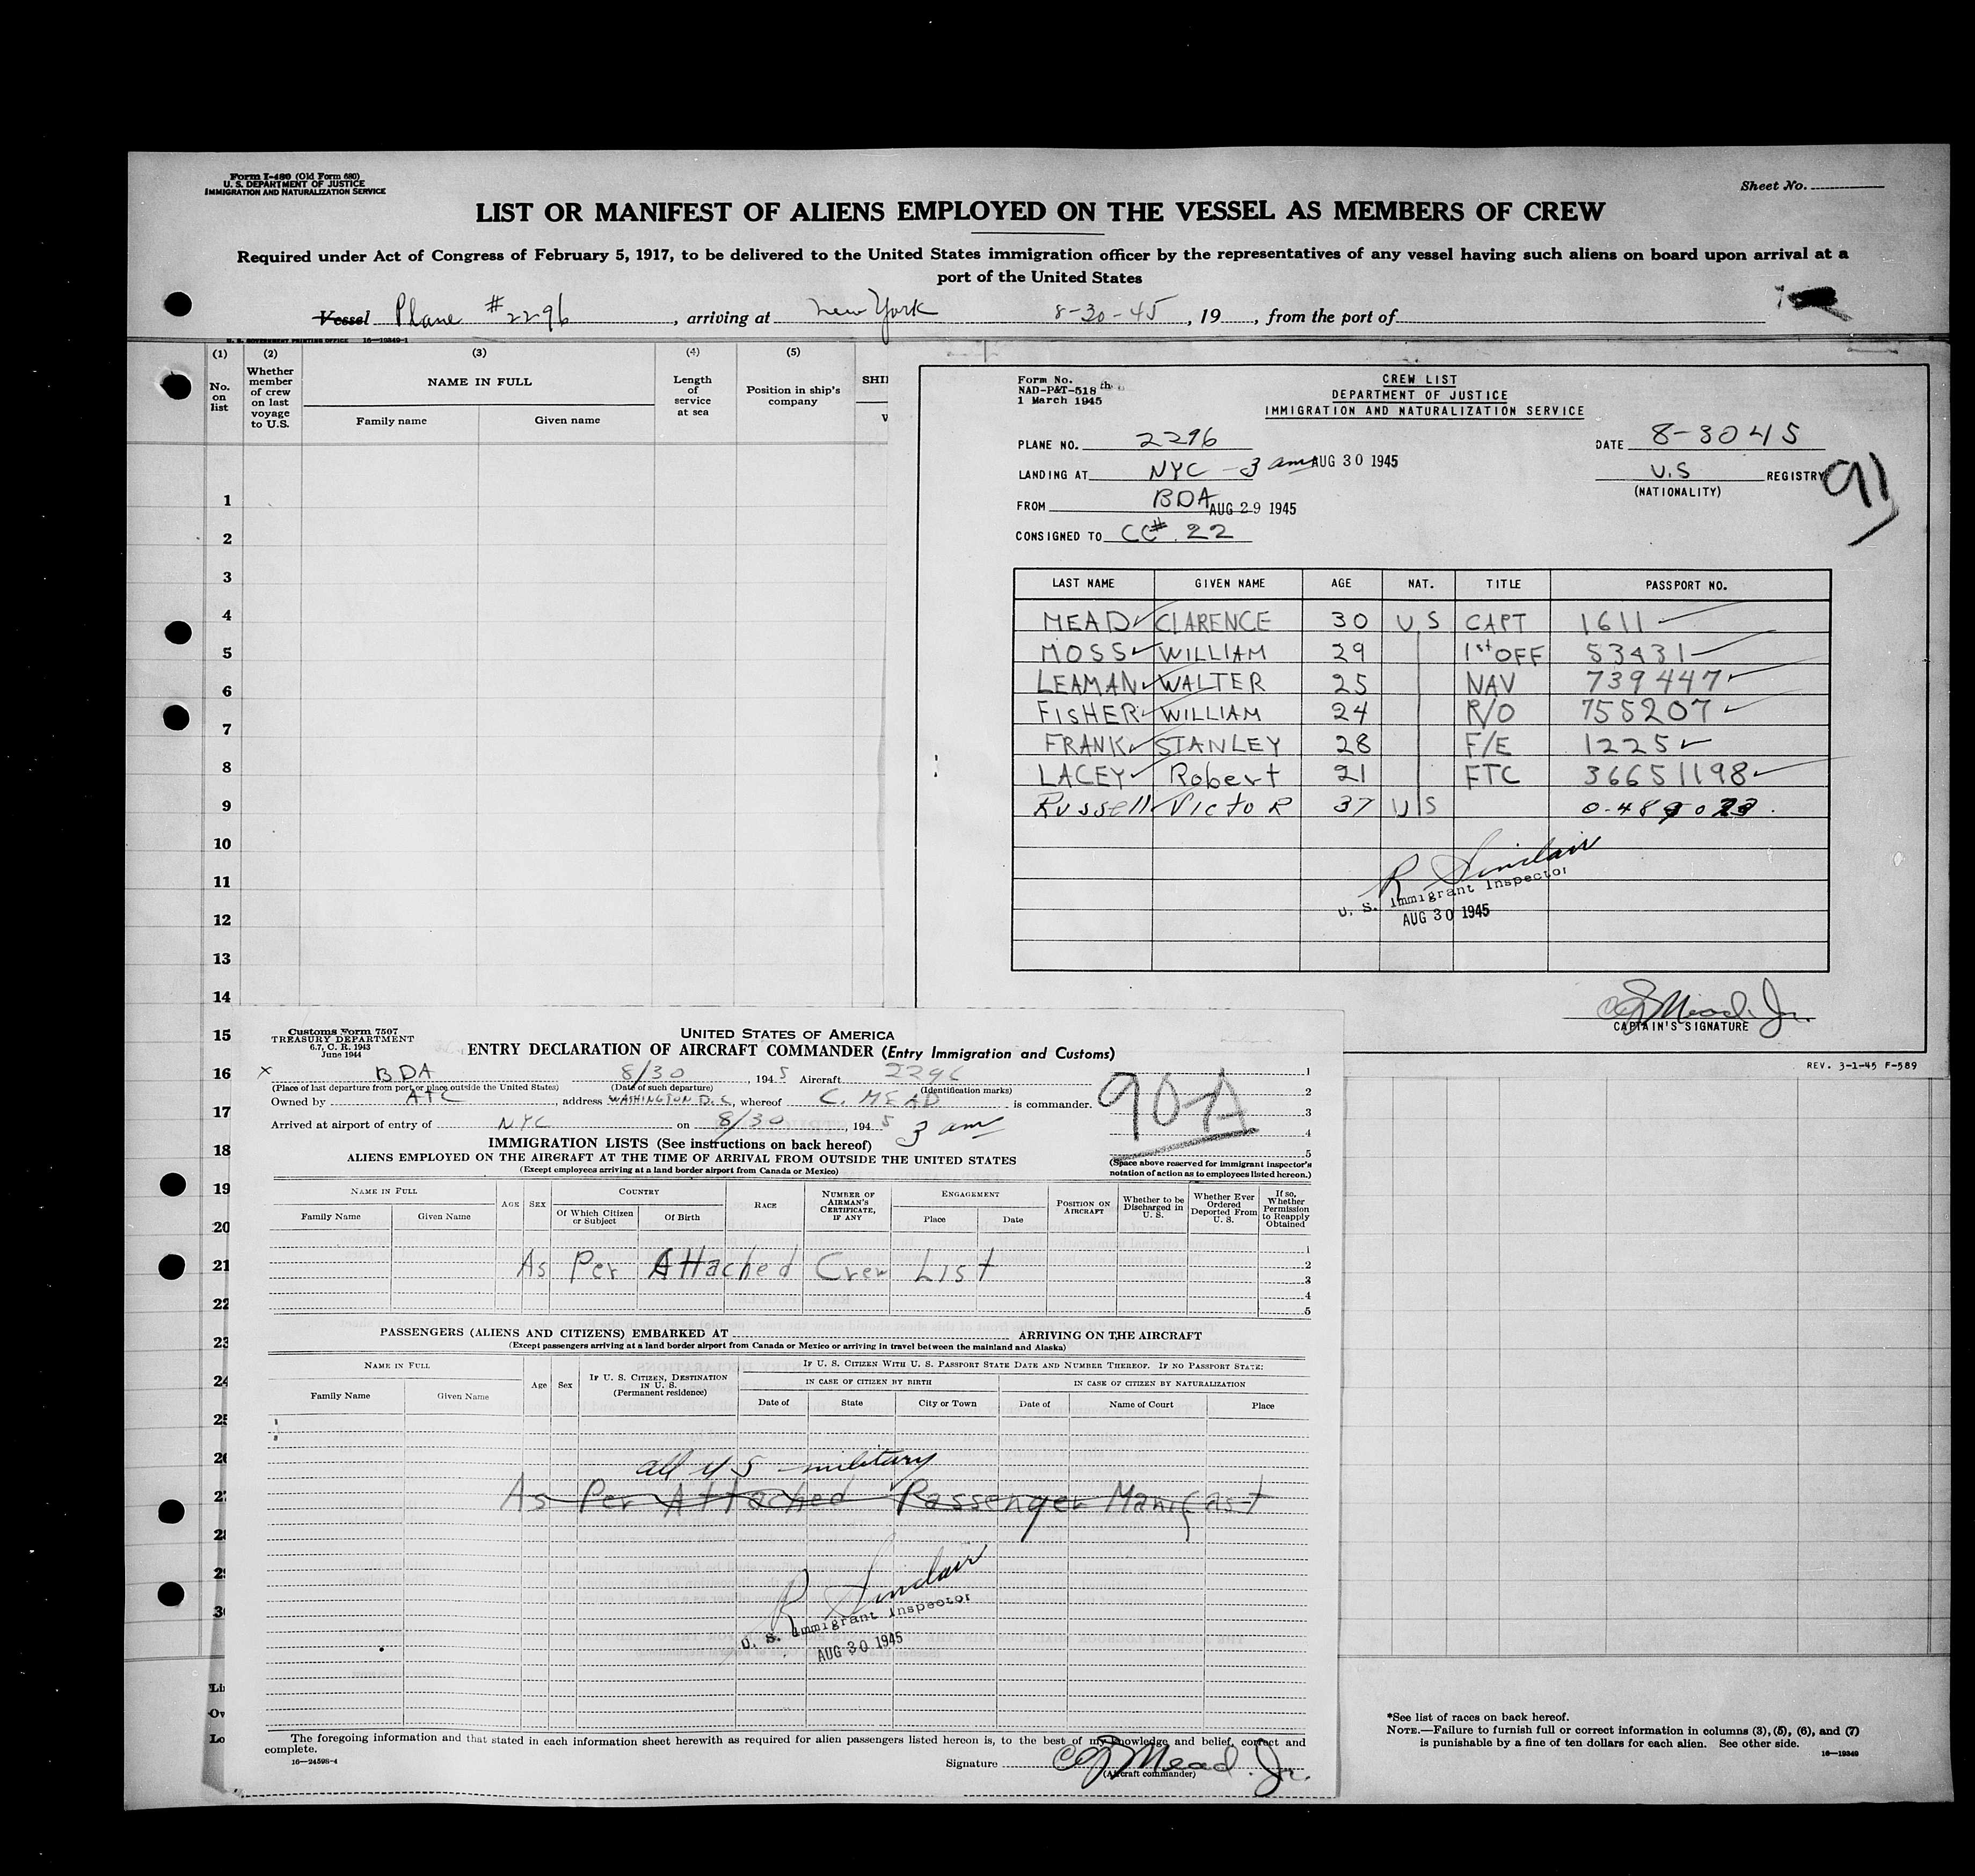 Form I-480 (Old Form 680)
U. S. DEPARTMENT OF JUSTICE
IMMIGRATION AND NATURALIZATION SERVICE
Sheet No.
LIST OR MANIFEST OF ALIENS EMPLOYED ON THE VESSEL AS MEMBERS OF CREW
Required under Act of Congress of February 5, 1917, to be delivered to the United States immigration officer by the representatives of any vessel having such aliens on board upon arrival at a
port of the United States
Vessel Plane #2296, arriving at New York 8-30-45, 19, from the port of
U. S. GOVERNMENT PRINTING OFFICE 16—19349-1
(1) (2) (3) (4) (5)
No. on list
Whether member of crew on last voyage to U.S.
NAME IN FULL
Family name Given name
Length of service at sea
Position in ship's company
SHI
1
2
3
4
5
6
7
8
9
10
11
12
13
14
15
16
17
18
19
20
21
22
23
24
Form No.
NAD-P&T-518
1 March 1945
CREW LIST
DEPARTMENT OF JUSTICE
IMMIGRATION AND NATURALIZATION SERVICE
PLANE NO. 2296 DATE 8-30 45
LANDING AT NYC - 3 am AUG 30 1945 U.S REGISTRY
(NATIONALITY)
91
FROM BDA AUG 29 1945
CONSIGNED TO CC# 22
LAST NAME GIVEN NAME AGE NAT. TITLE PASSPORT NO.
MEAD CLARENCE 30 U S CAPT 1611
MOSS WILLIAM 29 1st OFF 53431
LEAMAN WALTER 25 NAV 739447
FISHER WILLIAM 24 R/O 755207
FRANK STANLEY 28 F/E 1225
LACEY Robert 21 FTC 36651198
Russell Victor 37 U S
R Sinclair
U. S. Immigrant Inspector
AUG 30 1945
CAPTAIN'S SIGNATURE
Mead. Jr.
REV. 3-1-45 F-589
Customs Form 7507
TREASURY DEPARTMENT
6.7, C. R. 1943
June 1944
UNITED STATES OF AMERICA
ENTRY DECLARATION OF AIRCRAFT COMMANDER (Entry Immigration and Customs)
x BDA 8/30, 194 5 Aircraft 2296
(Place of last departure from port or place outside the United States) (Date of such departure) (Identification marks)
Owned by ATC, address WASHINGTON D.C, whereof C. MEAD is commander.
Arrived at airport of entry of NYC on 8/30, 194 5 3 am
90-A
1
2
3
4
5
(Space above reserved for immigrant inspector's
notation of action as to employees listed hereon.)
IMMIGRATION LISTS (See instructions on back hereof)
ALIENS EMPLOYED ON THE AIRCRAFT AT THE TIME OF ARRIVAL FROM OUTSIDE THE UNITED STATES
(Except employees arriving at a land border airport from Canada or Mexico)
NAME IN FULL
Family Name Given Name
AGE SEX
COUNTRY
Of Which Citizen or Subject Of Birth
RACE
NUMBER OF AIRMAN'S CERTIFICATE, IF ANY
ENGAGEMENT
Place Date
POSITION ON AIRCRAFT
Whether to be Discharged in U. S.
Whether Ever Ordered Deported From U. S.
If so, Whether Permission to Reapply Obtained
1
2
3
4
5
As Per Attached Crew List
PASSENGERS (ALIENS AND CITIZENS) EMBARKED AT ARRIVING ON THE AIRCRAFT
(Except passengers arriving at a land border airport from Canada or Mexico or arriving in travel between the mainland and Alaska)
NAME IN FULL
Family Name Given Name
Age Sex
IF U. S. CITIZEN, DESTINATION IN U. S. (Permanent residence)
IF U. S. CITIZEN WITH U. S. PASSPORT STATE DATE AND NUMBER THEREOF. IF NO PASSPORT STATE:
IN CASE OF CITIZEN BY BIRTH IN CASE OF CITIZEN BY NATURALIZATION
Date of State City or Town Date of Name of Court Place
all U S military
As Per Attached Passenger Manifast
R Sinclair
U. S. Immigrant Inspector
AUG 30 1945
The foregoing information and that stated in each information sheet herewith as required for alien passengers listed hereon is, to the best of my knowledge and belief, correct and
complete.
16—24598-4
Signature Mead. Jr.
(Aircraft commander)
*See list of races on back hereof.
NOTE.—Failure to furnish full or correct information in columns (3), (5), (6), and (7)
is punishable by a fine of ten dollars for each alien. See other side.
16—19349